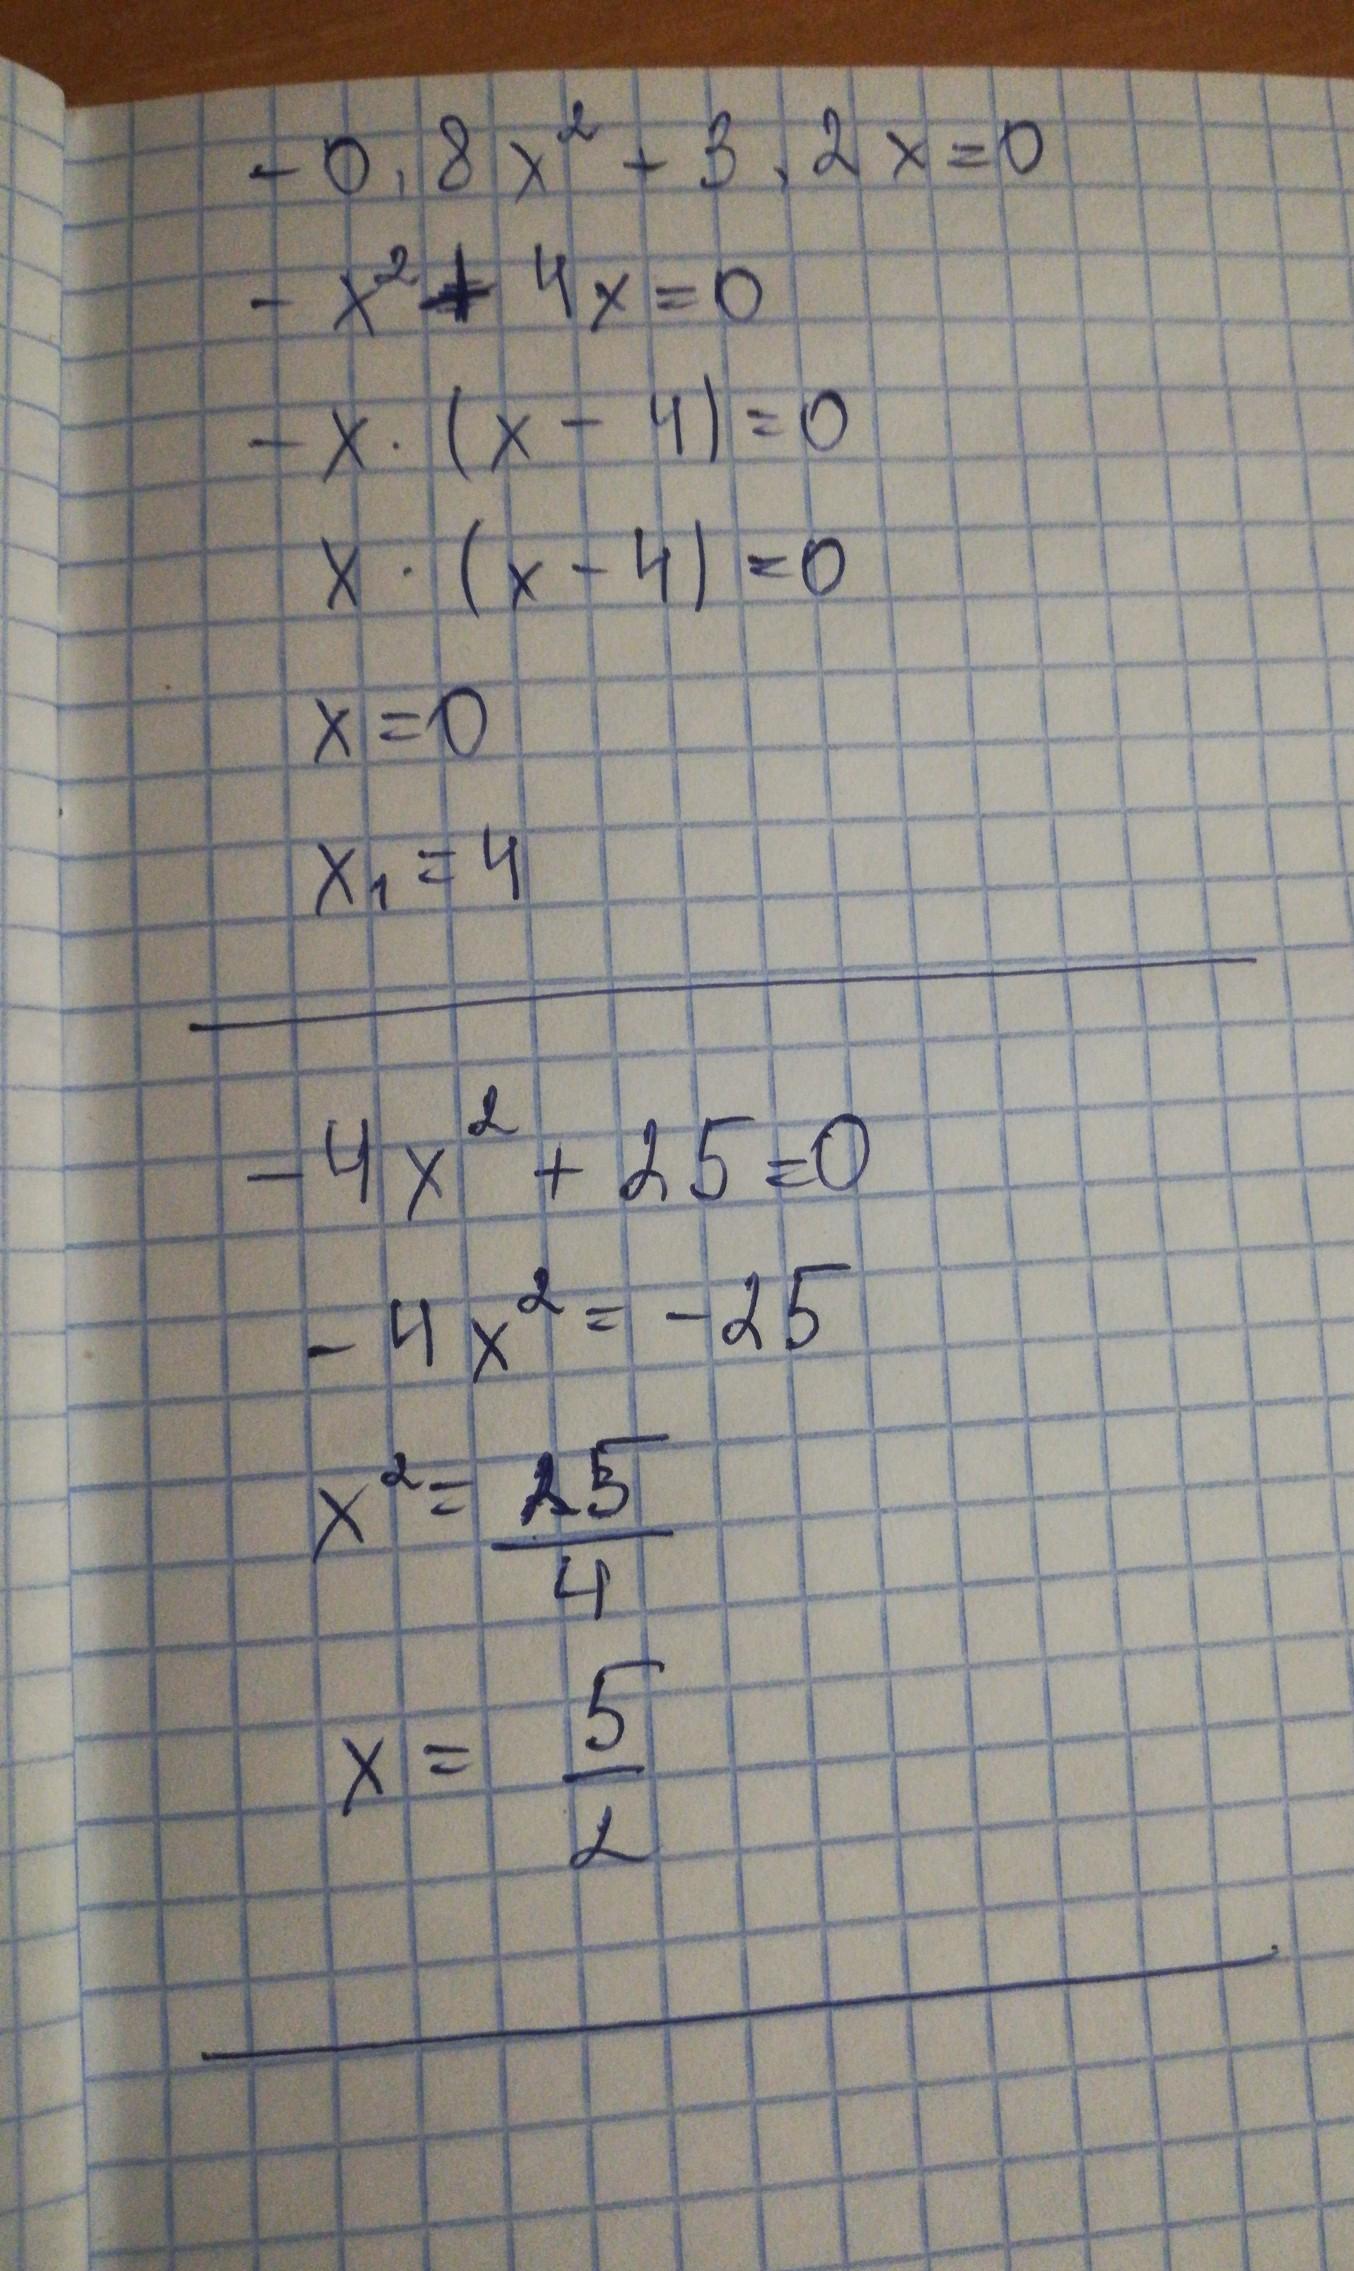 -0,8x² + 3,2x=0
-x² + 4x=0
-x·(x-4)=0
x·(x-4)=0
x=0
x₁=4
-4x² + 25=0
-4x²=-25
x²= 25/4
x= 5/2